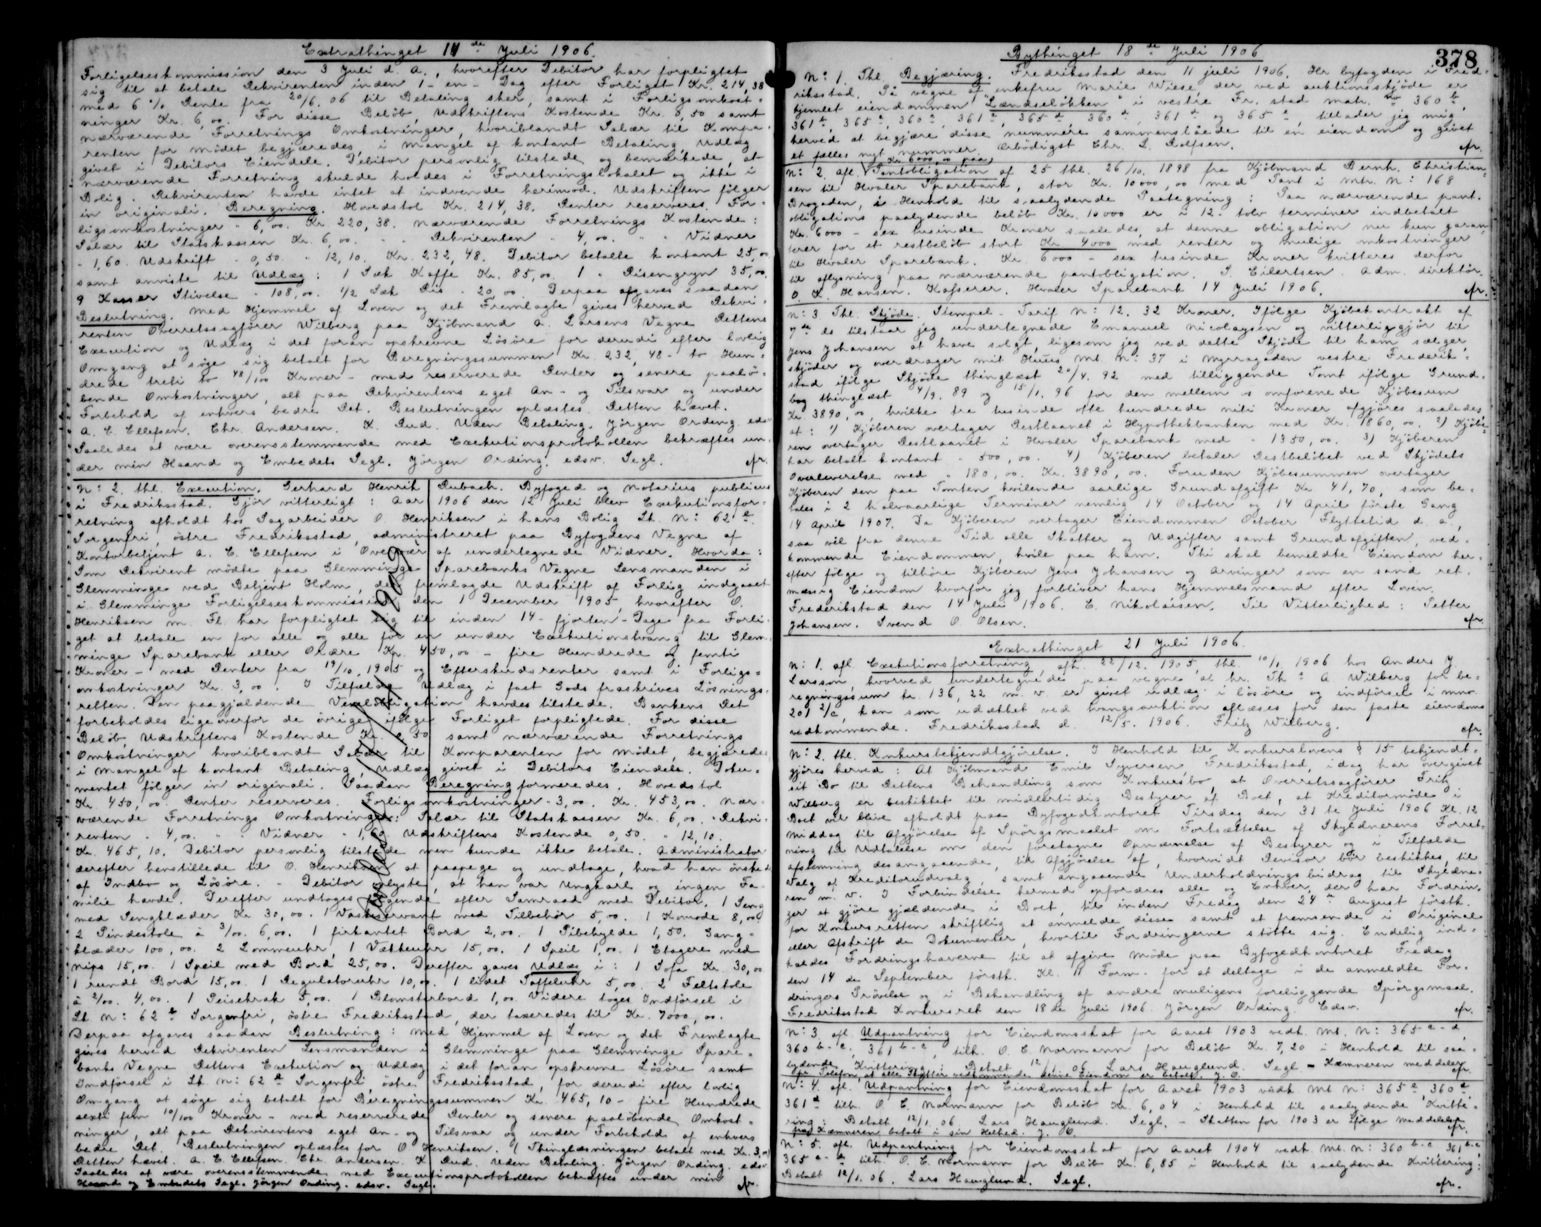 Extrathinget 11 de Juli 1906.
Forligelseskommission den 3 Juli d. A., hvorefter Debitor har forpligtet
sig til at betale Rekvirenten inden 1 - en - Dag efter Forliget Kr. 214,38
med 6 % Rente fra 20/6. 06 til Betaling sker, samt i Forligsomkost-
ninger Kr. 6,00. For disse Beløb, Udskriftens Kostende Kr. 0,50 samt
nærværende Forretnings Omkostninger, hvoriblandt Salær til Kompa-
renten for mødet begjæredes i Mangel af kontant Betaling Udlæg
givet i Debitors Eiendele. Debitor personlig tilstede og bemærkede, at
nærværende Forretning skulde holdes i Forretningslokalet og ikke i
Bolig. Rekvirenten havde intet at indvende herimod. Udskriften følger
in originali. Beregning. Hovedstol Kr. 214,38. Renter reserveres. For-
ligsomkostninger - 6,00. Kr. 220,38. Nærværende Forretnings Kostende:
Salær til Statskassen Kr. 6,00. - Rekvirenten - 4,00. - Vidner
- 1,60. Udskrift - 0,50. - 12,10. Kr. 232,48. Debitor betalte kontant 25,00
samt anviste til Udlæg: 1 Sæk Kaffe Kr. 85,00. 1 - Risengryn 35,00.
9 Kasser Stivelse - 108,00. 1/2 Sæk Ris - 20,00. Derpaa afgaves saadan
Beslutning. Med Hjemmel af Loven og det Fremlagte gives herved Rekvi-
renten Overretssagfører Wilberg paa Kjøbmand A. Larsens Vegne Rettens
Execution og Udlæg i det foran opskrevne Løsøre for derudi efter lovlig
Omgang at søge sig betalt for Beregningssummen Kr. 232,48 - to Hun-
drede treti to 48/100 Kroner - med reserverede Renter og senere paalø-
bende Omkostninger, alt paa Rekvirentens eget An- og Tilsvar og under
Forbehold af enhvers bedre Ret. Beslutningen oplæstes. Retten hævet.
A. C. Ellefsen. Chr. Andersen. K. Rud. Uden Betaling. Jörgen Ording. edsv.
Saaledes at være overensstemmende med Exekutionsprotokollen bekræftes un-
der min Haand og Embedets Segl. Jörgen Ording. edsv. Segl. efr.
N: 2. thl. Execution. Gerhard Henrik Dubach. Byfoged og Notarius publicus
i Fredriksstad. Gjør vitterligt: Aar 1906 den 12 Juli blev Exekutionsfor-
retning afholdt hos Sagarbeider O. Henriksen i hans Bolig Lt. N: 62 a
Sorgenfri, østre Fredriksstad, administreret paa Byfogdens Vegne af
Kontorbetjent A. C. Ellefsen i Overvær af undertegnede Vidner. Hvorda:
Som Rekvirent mødte paa Glemminge Sparebanks Vegne Lensmanden i
Glemminge ved Betjent Holm, der fremlagde Udskrift af Forlig indgaaet
i Glemminge Forligelseskommission den 1 December 1905, hvorefter O.
Henriksen m. Fl. har forpligtet sig til inden 14 - fjorten - Dage fra Forli-
get at betale en for alle og alle for en under Exekutionstvang til Glem-
minge Sparebank eller Ordre Kr. 450,00 - fire Hundrede og femti
Kroner - med Renter fra 19/10. 1905 og Efterskudsrenter samt i Forligs-
omkostninger Kr. 3,00. I Tilfælde Udlæg i fast Gods fraskrives Løsnings-
retten. Den paagjældende Vexelobligation havdes tilstede. Bankens Ret
forbeholdes ligeoverfor de øvrige ifølge Forliget forpligtede. For disse
Beløb, Udskriftens Kostende Kr. 0,50 samt nærværende Forretnings
Omkostninger hvoriblandt Salær til Komparenten for Mødet, begjæredes
i Mangel af kontant Betaling Udlæg givet i Debitors Eiendele. Doku-
mentet følger in originali. Saadan Beregning formeredes. Hovedstol
Kr. 450,00 Renter reserveres. Forligsomkostninger - 3,00. Kr. 453,00. Nær-
værende Forretnings Omkostninger: Salær til Statskassen Kr. 6,00. - Rekvi-
renten - 4,00. - Vidner - 1,60 Udskriftens Kostende 0,50. - 12,10.
Kr. 465,10. Debitor personlig tilstede men kunde ikke betale. Administrator
derefter henstillede til O. Henriksen at paapege og undtage, hvad han ønsket
af Indbo og Løsøre. - Debitor oplyste, at han var Ungkarl og ingen Fa-
milie havde. Derefter undtoges følgende efter Samraad med Debitor. 1 Seng
med Sengklæder Kr. 30,00. 1 Vaskeservant med Tilbehør 5,00. 1 Komode 8,00
2 Pindestole à 3/00. 6,00. 1 firkantet Bord 2,00. 1 Tilehylde 1,50. Gang-
klæder 100,00. 2 Lommeuhr, 1 Vækkeuhr 15,00. 1 Speil 1,00. 1 Etagere med
nips 15,00. 1 Speil med Bord, 25,00. Derefter gaves Udlæg i: 1 Sofa Kr. 30,00
1 rundt Bord 15,00. 1 Regulatoruhr 10,00. 1 lidet Taffeluhr 5,00. 2 Feltstole
à 2/00. 4,00. 1 Reisetræk 5,00. 1 Blomsterbord 1,00. Videre toges Indførsel i
Lt. N: 62 a Sorgenfri, østre Fredriksstad, der taxeredes til Kr. 7000,00.
Derpaa afgaves saadan Beslutning: med Hjemmel af Loven og det Fremlagte
gives herved Rekvirenten Lensmanden i Glemminge paa Glemminge Spare-
banks Vegne Rettens Exekution og Udlæg i det foran opskrevne Løsøre samt
Indførsel i Lt. N: 62 a Sorgenfri, østre Fredriksstad, for derudi efter lovlig
Omgang at søge sig betalt for Beregningssummen Kr. 465,10 - fire Hundrede
sexti fem 10/100 Kroner - med reserverede Renter og senere paaløbende Omkost-
ninger, alt paa Rekvirentens eget An- og Tilsvar og under Forbehold af enhvers
bedre Ret. Beslutningen oplæstes for O. Henriksen. Thinglæsningen betalt med Kr. 3,00
Retten hævet. A. C. Ellefsen. Chr. Andersen. K. Rud. Uden Betaling. Jörgen Ording. edsv
Saaledes at være overensstemmende med Executionsprotokollen bekræftes under min
Haand og Embedets Segl. Jörgen Ording. edsv. Segl. efr.
1909
378
Bythinget 18 de Juli 1906
N: 1. Thl. Begjæring. Fredriksstad den 11 juli 1906. Hr byfogden i Fred-
riksstad. På vegne af enkefru Marie Wiese, der ved auktionsskjøde er
hjemlet eiendommen "Lændseløkken" i vestre Fr. stad matr. No 360 b,
361 b, 365 c, 360 c, 361 c, 365 d, 360 d, 361 d og 365 e, tillader jeg mig
herved at begjære disse nummere sammenslåede til en eiendom og givet
et fælles nyt nummer. Ærbødigst Chr. L. Rolfsen. efr.
N: 2. afl. Kr. 6000,00 paa Pantobligation af 25 thl. 26/10. 1898 fra Kjøbmand Bernh. Christian-
sen til Hvaler Sparebank, stor Kr. 10 000,00 med Pant i Mtr. N: 168
Brogaden, i Henhold til saalydende Paategning: Paa nærværende pant-
obligations paalydende beløb Kr. 10000 er i 12 - tolv terminer indbetalt
Kr. 6000 - sex tusinde Kroner saaledes, at denne obligation nu kun garan-
terer for et restbeløb stort Kr. 4000 med renter og mulige omkostninger
til Hvaler Sparebank. Kr. 6000 - sex tusinde Kroner kvitteres derfor
til aflysning paa nærværende pantobligation. P. Eilertsen. Adm. direktør.
O. L. Hansen. Kasserer. Hvaler Sparebank 14 Juli 1906. efr.
N: 3 Thl. Skjøde. Stempel-Tarif N: 12. 32 Kroner. Ifølge Kjøbekontrakt af
7 de ds tilstaar jeg undertegnede Emanuel Nicolaysen og vitterliggjør til
Jens Johansen at have solgt, ligesom jeg ved dette Skjøde til ham sælger,
skjøder og overdrager mit Huus Mt. N: 37 i Myrragaden vestre Fredrik-
stad ifølge Skjøde thinglæst 20/4. 92 med tilliggende Tomt ifølge Grund-
bog thinglæst 4/9. 89 og 15/1. 96 for den mellem os omforenede Kjøbesum
Kr. 3890,00, hvilke tre tusinde otte hundrede niti Kroner afgjøres saaledes,
at: 1) Kjøberen overtager Restlaanet i Hypothekbanken med Kr. 1860,00. 2) Kjøbe-
ren overtager Restlaanet i Hvaler Sparebank med - 1350,00. 3) Kjøberen
har betalt kontant - 500,00. 4) Kjøberen betaler Restbeløbet ved Skjødets
Overleverelse med 180,00. Kr. 3890,00. Foruden Kjøbesummen overtager
Kjøberen den paa Tomten hvilende aarlige Grundafgift Kr 41,70, som be-
tales i 2 halvaarlige Terminer nemlig 14 October og 14 April første Gang
14 April 1907. Da Kjøberen overtager Eiendommen October Flyttetid d. a.,
saa vil fra denne Tid alle Skatter og Udgifter samt Grundafgiften, ved-
kommende Eiendommen, hvile paa ham. Thi skal bemeldte Eiendom her-
efter følge og tilhøre Kjøberen Jens Johansen og Arvinger som en sand ret-
mæssig Eiendom hvorfor jeg forbliver hans Hjemmelsmand efter Loven.
Fredrikstad den 14 Juli 1906. E. Nikolaisen. Til Vitterlighed: Petter
Johansen. Svend O. Olsen. efr
Extrathinget 21 Juli 1906.
N: 1. afl. Exekutionsforretning afh. 22/12. 1905, thl. 10/1 1906 hos Anders J
Larsson, hvorved undertegnede paa vegne af hr. Th: A Wilberg for be-
regningssum kr. 136,22 m. v. er givet udlæg i løsøre og indførsel i mno
201 2/c, kan som udslettet ved tvangsauktion aflæses for den faste eiendoms
vedkommende. Fredriksstad d. 12/5. 1906. Fritz Wilberg. efr.
N: 2. thl. Konkursbekjendtgjørelse. I Henhold til Konkurslovens § 15 bekjendt-
gjøres herved: At Kjøbmand Emil Syversen Fredriksstad, idag har overgivet
sit Bo til Rettens Behandling som Konkursbo, at Overretssagfører Fritz
Wilberg er beskikket til midlertidig Bestyrer af Boet, at Kreditormøde i
Boet vil blive afholdt paa Byfogedkontoret Tirsdag den 31 te Juli 1906 Kl. 12
Middag til Afgjørelse af Spørgsmaalet om Fortsættelse af Skyldnerens Forret-
ning til Udtalelse om den foretagne Opnævnelse af Bestyrer og i Tilfælde
afstemning desangaaende, til Afgjørelse af, hvorvidt Revisor bør beskikkes, til
Valg af Kreditorudvalg, samt angaaende Underholdningsbidrag til Skyldne-
ren m. v. I Forbindelse hermed opfordres alle og Enhver, der har Fordrin-
ger at gjøre gjældende i Boet, til inden Fredag den 24 de August førstk.
for Konkursretten skriftlig at anmelde disse samt at fremsende i Original
eller Afskrift de Dokumenter, hvortil Fordringerne støtte sig. Endelig ind-
kaldes Fordringshaverne til at afgive møde paa Byfogedkontoret Fredag
den 14 de September førstk. Kl. 11 Form. for at deltage i de anmeldte For-
dringers Prøvelse og i Behandling af andre muligens foreliggende Spørgsmaal.
Fredriksstad Konkursret den 18 de Juli 1906. Jörgen Ording. Edsv. efr.
N: 3. afl. Udpantning for Eiendomsskat for Aaret 1903 vedk. Mt. N: 365 a-d,
360 b-c, 361 b-c, tilh. O. E. Normann for Beløb Kr. 7,20 i Henhold til saa-
lydende Kvittering: Betalt 12/1. 06. Lars Hauglund. Segl. - Kæmneren meddeler
N: 4. afl. Udpantning for Eiendomsskat for Aaret 1903 vedk. Mt. N: 365 a, 360 a
361 a tilh. O. E. Normann for Beløb Kr. 6,04 i Henhold til saalydende Kvitte-
ring: Betalt 12/1. 06. Lars Hauglund. Segl. - Skatten for 1903 er ifølge meddelelse
fra Kæmneren betalt i sin Helhed. J. O. efr.
N: 5. afl. Udpantning for Eiendomsskat for Aaret 1904 vedk. Mt. N: 360 b-c, 361 b-c
365 a-d tilh. O. E. Normann for Beløb Kr. 6,85 i Henhold til saalydende Kvittering:
Betalt 12/1. 06. Lars Hauglund. Segl. efr.